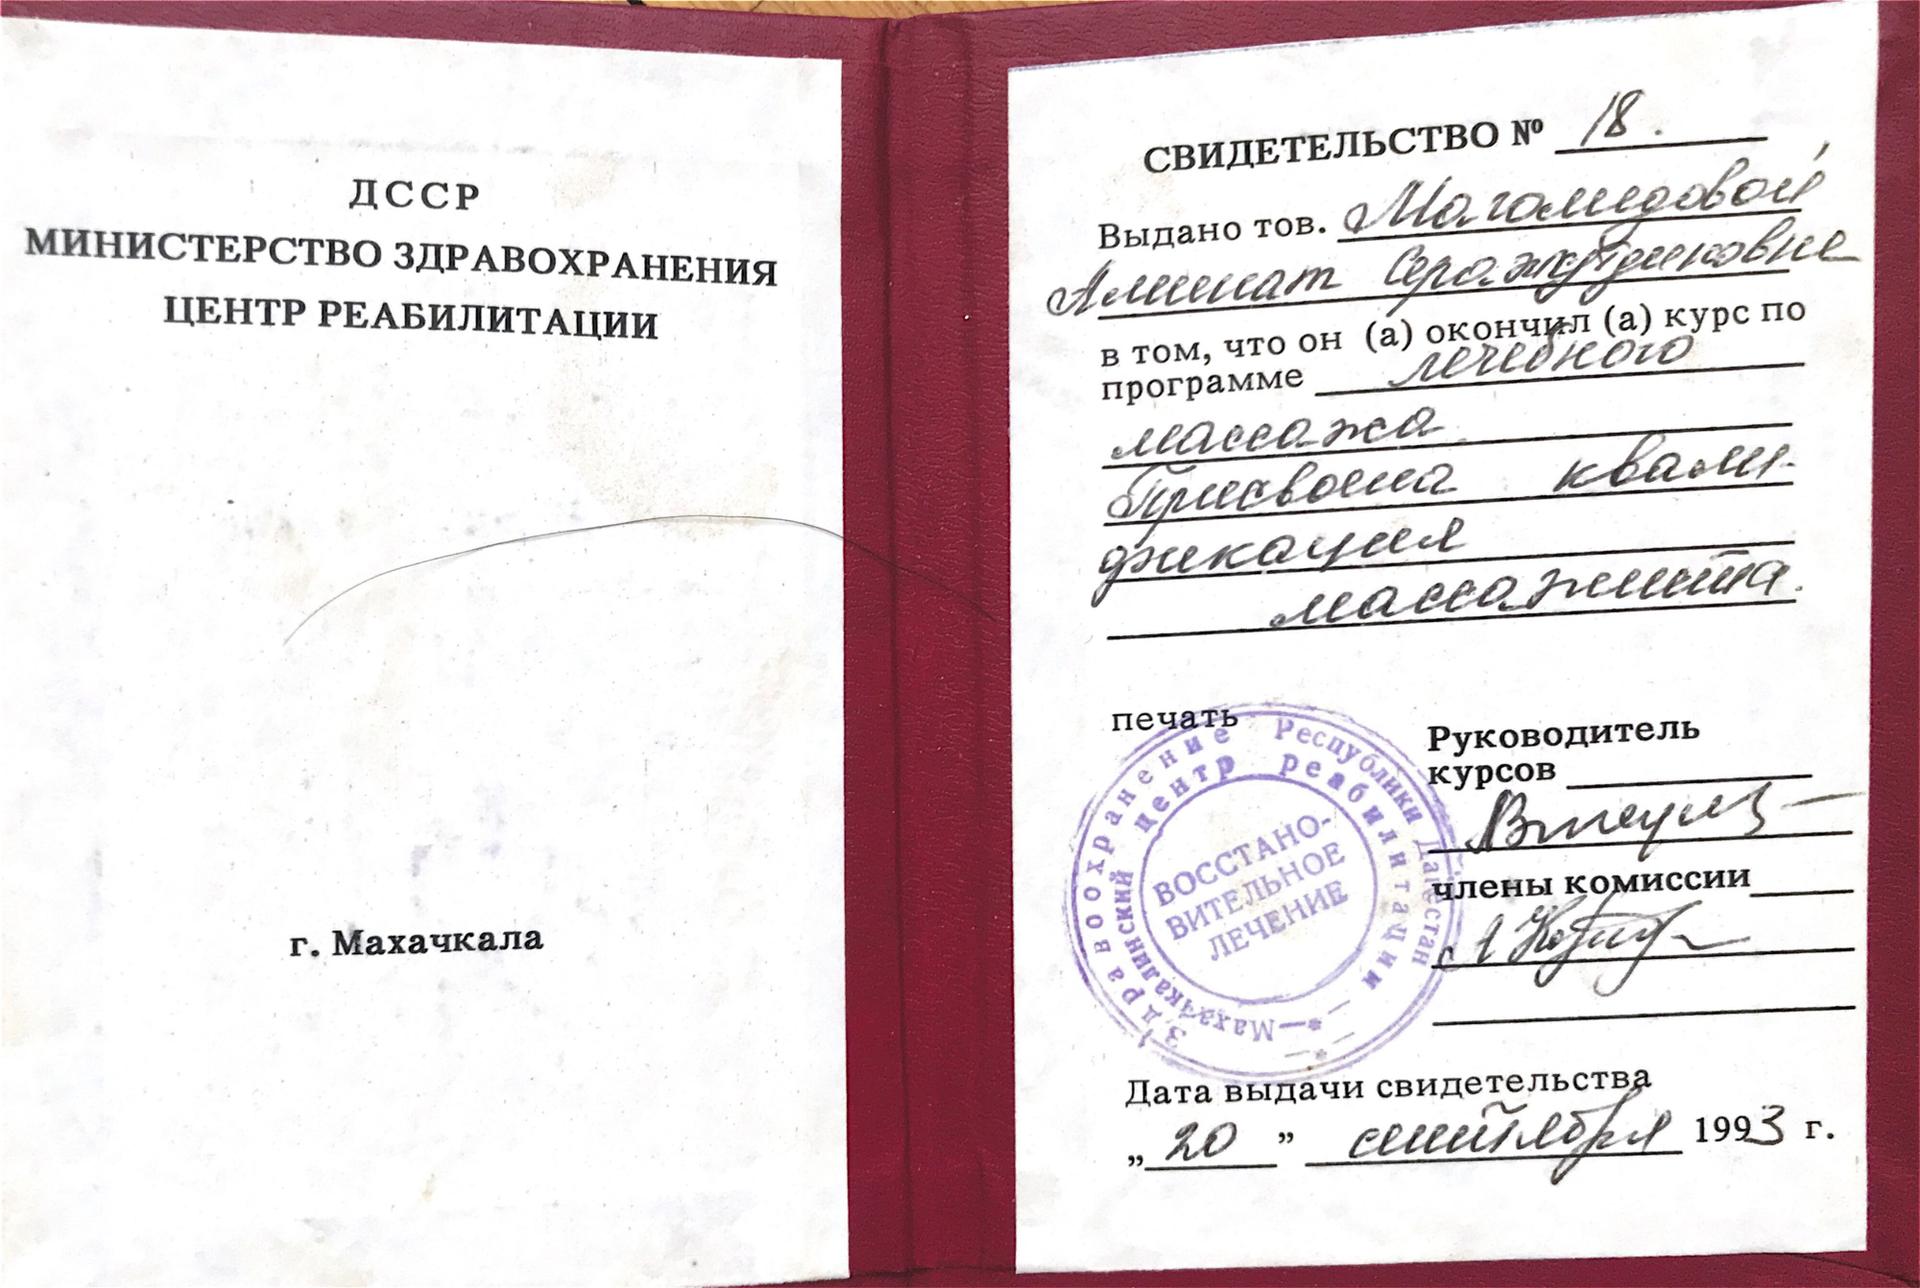 ДССР
МИНИСТЕРСТВО ЗДРАВОХРАНЕНИЯ
ЦЕНТР РЕАБИЛИТАЦИИ
г. Махачкала
СВИДЕТЕЛЬСТВО № 18.
Выдано тов. Магомедовой
Аминат Серажутдиновне
в том, что он (а) окончил (а) курс по
программе лечебного
массажа
Присвоена квали-
фикация
массажиста.
печать
Здравоохранение Республики Дагестан
Махачкалинский центр реабилитации
ВОССТАНО-
ВИТЕЛЬНОЕ
ЛЕЧЕНИЕ
Руководитель
курсов
члены комиссии
Дата выдачи свидетельства
„20” сентября 1993 г.